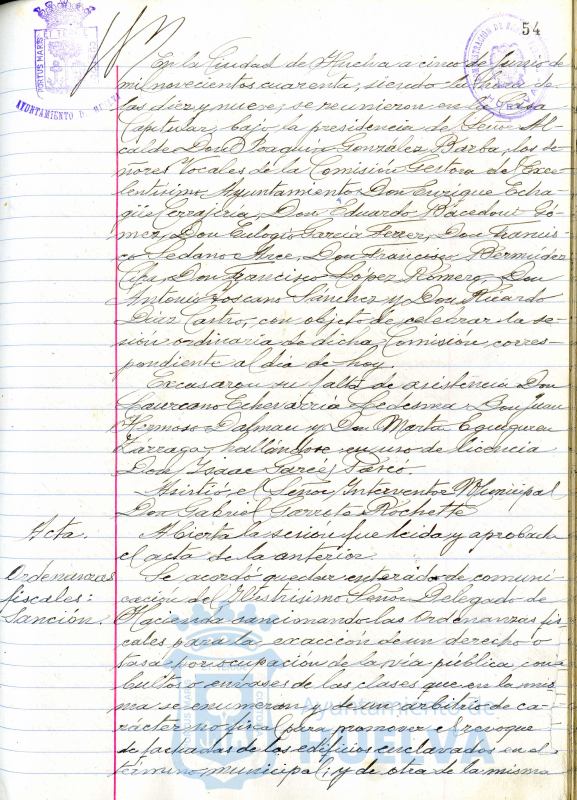 54
En la Ciudad de Huelva a cinco de Junio de
mil novecientos cuarenta, siendo la hora de
las diez y nueve, se reunieron en la Casa
Capitular, bajo la presidencia del Señor Al-
calde Don Joaquín González Barba, los Se-
ñores Vocales de la Comisión Gestora del Exce-
lentísimo Ayuntamiento Don Enrique Echa-
güe Cerrajería, Don Eduardo Bacedoni Gó-
mez, Don Eulogio García Ferrer, Don Francis-
co Sedano Arce, Don Francisco Bermúdez
Don Francisco López Romero, Don
Antonio Toscano Sánchez y Don Ricardo
Díaz Castro, con objeto de celebrar la se-
sión ordinaria de dicha Comisión corres-
pondiente al día de hoy.
Excusaron su falta de asistencia Don
Laureano Echevarría Ledesma Don Juan
Hermoso Dalmau y Don Martín Eguiguren
Zárraga, hallándose en uso de licencia
Don Isaac Garcés Pasco
Asistió el Señor Interventor Municipal
Don Gabriel Garrete Rochette
Acta. Abierta la sesión fue leida y aprobada
el acta de la anterior
Ordenanzas Se acordó quedar enterado de comuni-
fiscales: cación del Ilustrísimo Señor Delegado de
Sanción. Hacienda sancionando las Ordenanzas fis-
cales para la exacción de un derecho o
tasa por ocupación de la vía pública con
bultos y envases de las clases que en la mis-
ma se enumeran y de un arbitrio de ca-
rácter no fiscal para promover el revoque
de fachadas de los edificios enclavados en el
término municipal; y de otra de la misma
PORTUS MARIS
AYUNTAMIENTO DE HUELVA
Ayuntamiento de
HUELVA